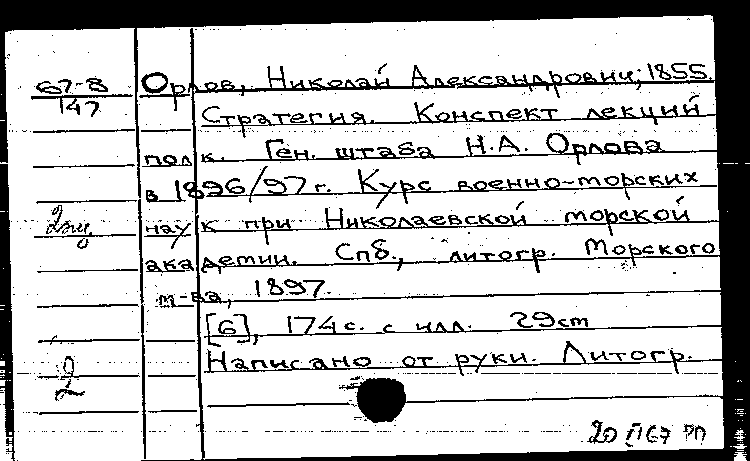 67-8
147
Орлов, Николай Александрович; 1855.
Стратегия. Конспект лекций
полк. Ген. штаба Н.А. Орлова
в 1896/97 г. Курс военно-морских
наук при Николаевской морской
академии. Спб., литогр. Морского
м-ва, 1897.
[6], 174 с. с илл. 29 см
Написано от руки. Литогр.
2
20 II 67 РП